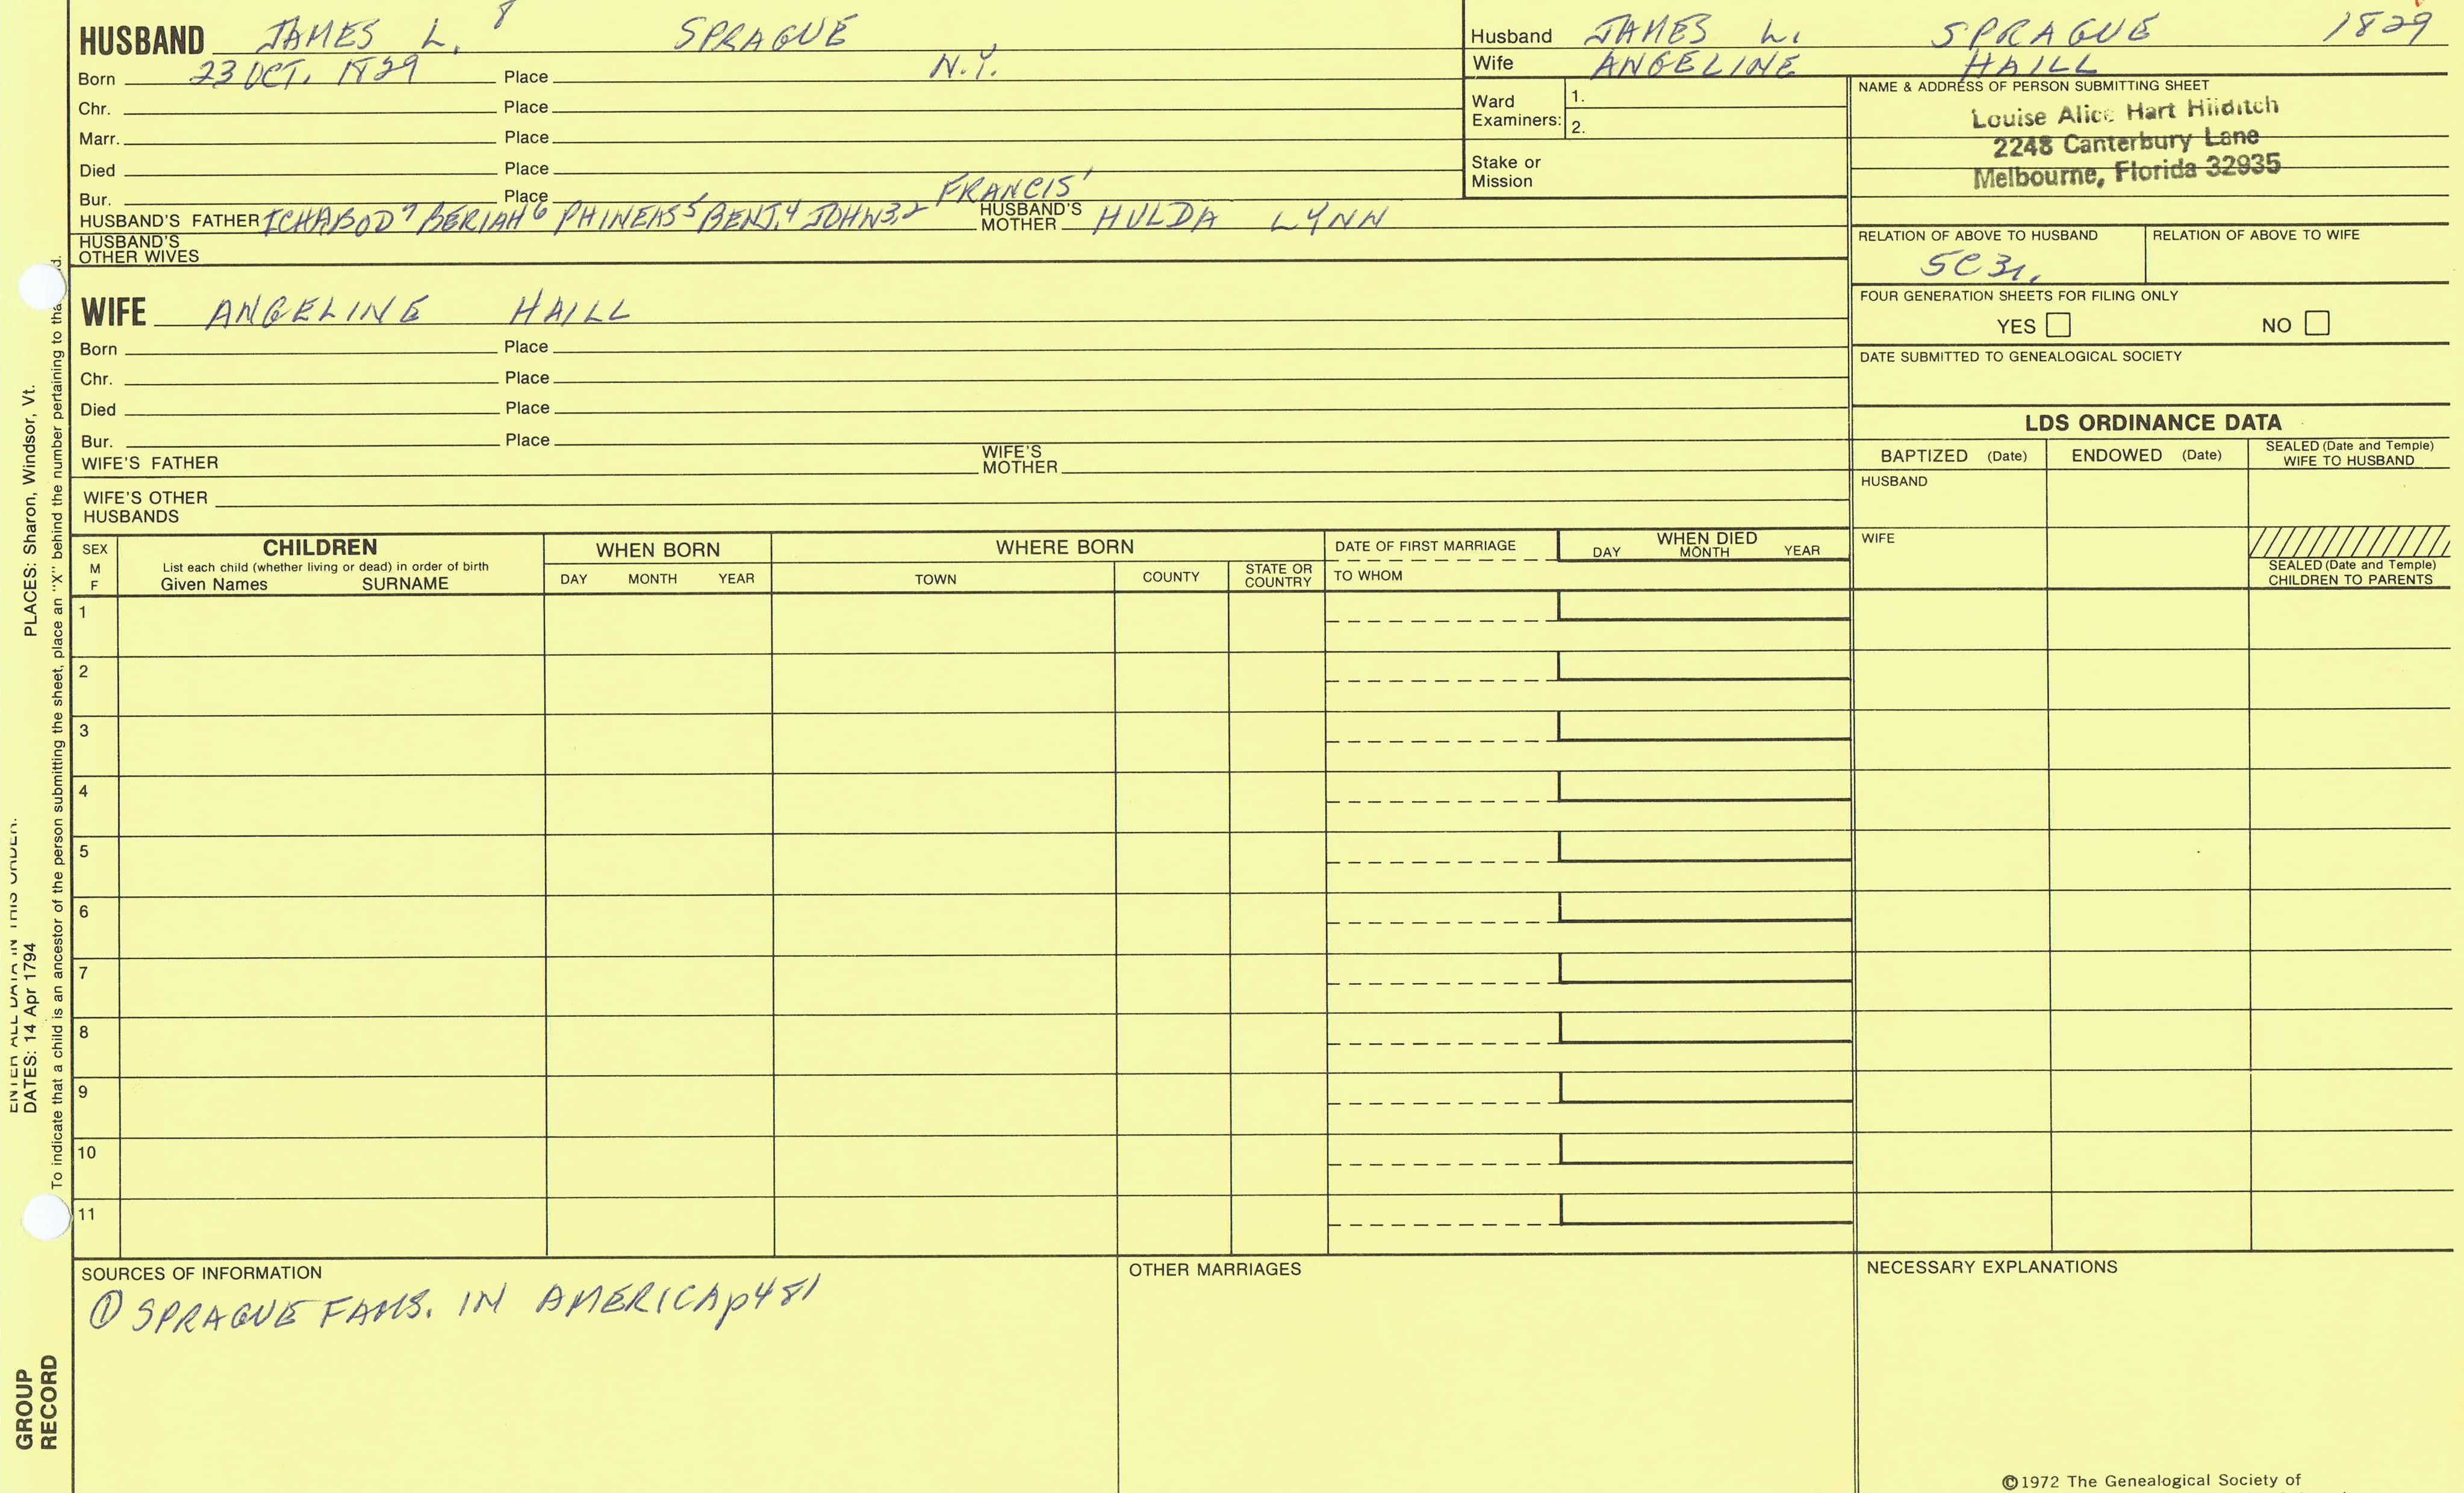 HUSBAND JAMES L. 8 SPRAGUE
Born 23 OCT. 1829 Place N.Y.
Chr. Place
Marr. Place
Died Place
Bur. Place
HUSBAND'S FATHER ICHABOD7 BERIAH6 PHINEAS5 BENJ.4 JOHN3,2 FRANCIS1 HUSBAND'S MOTHER HULDA LYNN
HUSBAND'S OTHER WIVES
Husband JAMES L. SPRAGUE 1829
Wife ANGELINE HAILL
Ward Examiners: 1.
2.
Stake or Mission
NAME & ADDRESS OF PERSON SUBMITTING SHEET
Louise Alice Hart Hilditch
2248 Canterbury Lane
Melbourne, Florida 32935
RELATION OF ABOVE TO HUSBAND RELATION OF ABOVE TO WIFE
5C3r.
FOUR GENERATION SHEETS FOR FILING ONLY
YES NO
DATE SUBMITTED TO GENEALOGICAL SOCIETY
WIFE ANGELINE HAILL
Born Place
Chr. Place
Died Place
Bur. Place
WIFE'S FATHER WIFE'S MOTHER
WIFE'S OTHER HUSBANDS
LDS ORDINANCE DATA
BAPTIZED (Date) ENDOWED (Date) SEALED (Date and Temple) WIFE TO HUSBAND
HUSBAND
WIFE
SEALED (Date and Temple) CHILDREN TO PARENTS
SEX M F
CHILDREN
List each child (whether living or dead) in order of birth
Given Names SURNAME
WHEN BORN
DAY MONTH YEAR
WHERE BORN
TOWN COUNTY STATE OR COUNTRY
DATE OF FIRST MARRIAGE
TO WHOM
WHEN DIED
DAY MONTH YEAR
1
2
3
4
5
6
7
8
9
10
11
SOURCES OF INFORMATION
① SPRAGUE FAMS. IN AMERICA p481
OTHER MARRIAGES
NECESSARY EXPLANATIONS
©1972 The Genealogical Society of
ENTER ALL DATA IN THIS ORDER.
DATES: 14 Apr 1794 PLACES: Sharon, Windsor, Vt.
To indicate that a child is an ancestor of the person submitting the sheet, place an "X" behind the number pertaining to tha d.
GROUP RECORD